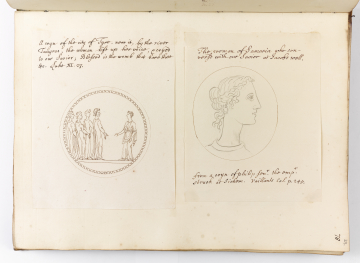 A coyn of the city of Tyre, now in, by the river
the woman lifts up her voice, & cryes
to our Savior, Blessed is the womb that bare thee
&c. Luke XI. 27.
The woman of Samaria who con-
verst with our Savior at Jacobs well.
from a coyn of philip senr. the emp.
struck at Sichem. Vaillant Col. p. 244.